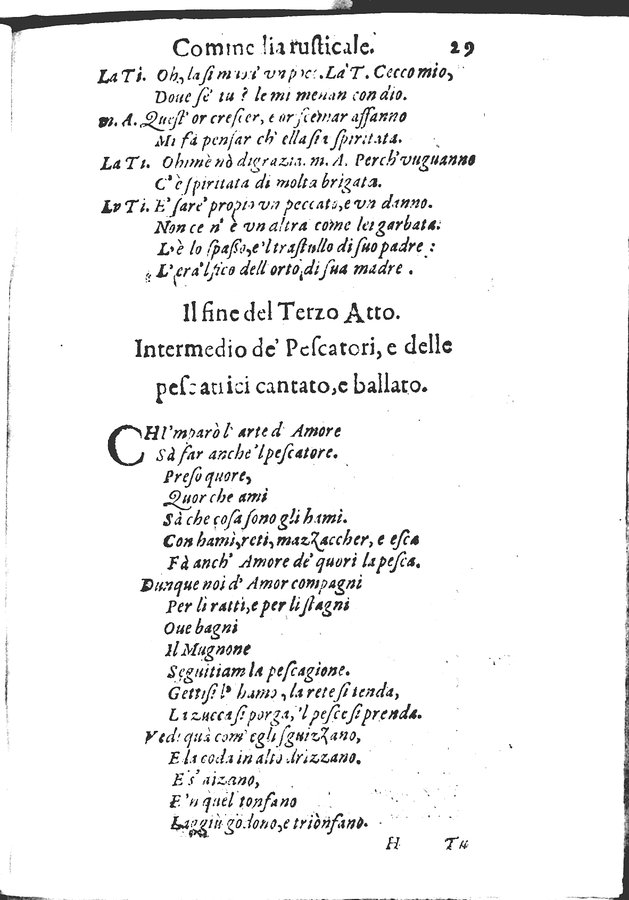 Comme lia rusticale. 29
La Ti. Oh, lasi La T. Cecco mio,
Doue se' tu ? le mi menan con dio.
m. A. Quest' or crescer, e or scemar affanno
Mi fà pensar ch' ella sia spiritata.
La Ti. Ohimè nò digrazia. m. A. Perch' vuguanno
C' è spiritata di molta brigata.
Lv Ti. E' sare' propio vn peccato, e vn danno.
Non ce n' è vn altra come lei garbata.
L' è lo spasso, e 'l trastullo di suo padre :
L' era 'l fico dell orto, di sua madre .
Il fine del Terzo Atto.
Intermedio de' Pescatori, e delle
pescatrici cantato, e ballato.
CHI 'mparò l' arte d' Amore
Sà far anche 'l pescatore.
Preso quore,
Quor che ami
Sà che cosa sono gli hami.
Con hami, reti, mazzaccher, e esca
Fà anch' Amore de' quori la pesca.
Dunque noi d' Amor compagni
Per li ratti, e per li stagni
Oue bagni
Il Mugnone
Seguitiam la pescagione.
Gettisi l' hamo, la rete si tenda,
La zucca si porga, 'l pesce si prenda.
Vedi quà com' egli sguizzano,
E la coda in alto drizzano.
E s' aizano,
E 'n quel tonfano
Laggiù godono, e trionfano.
H Tu